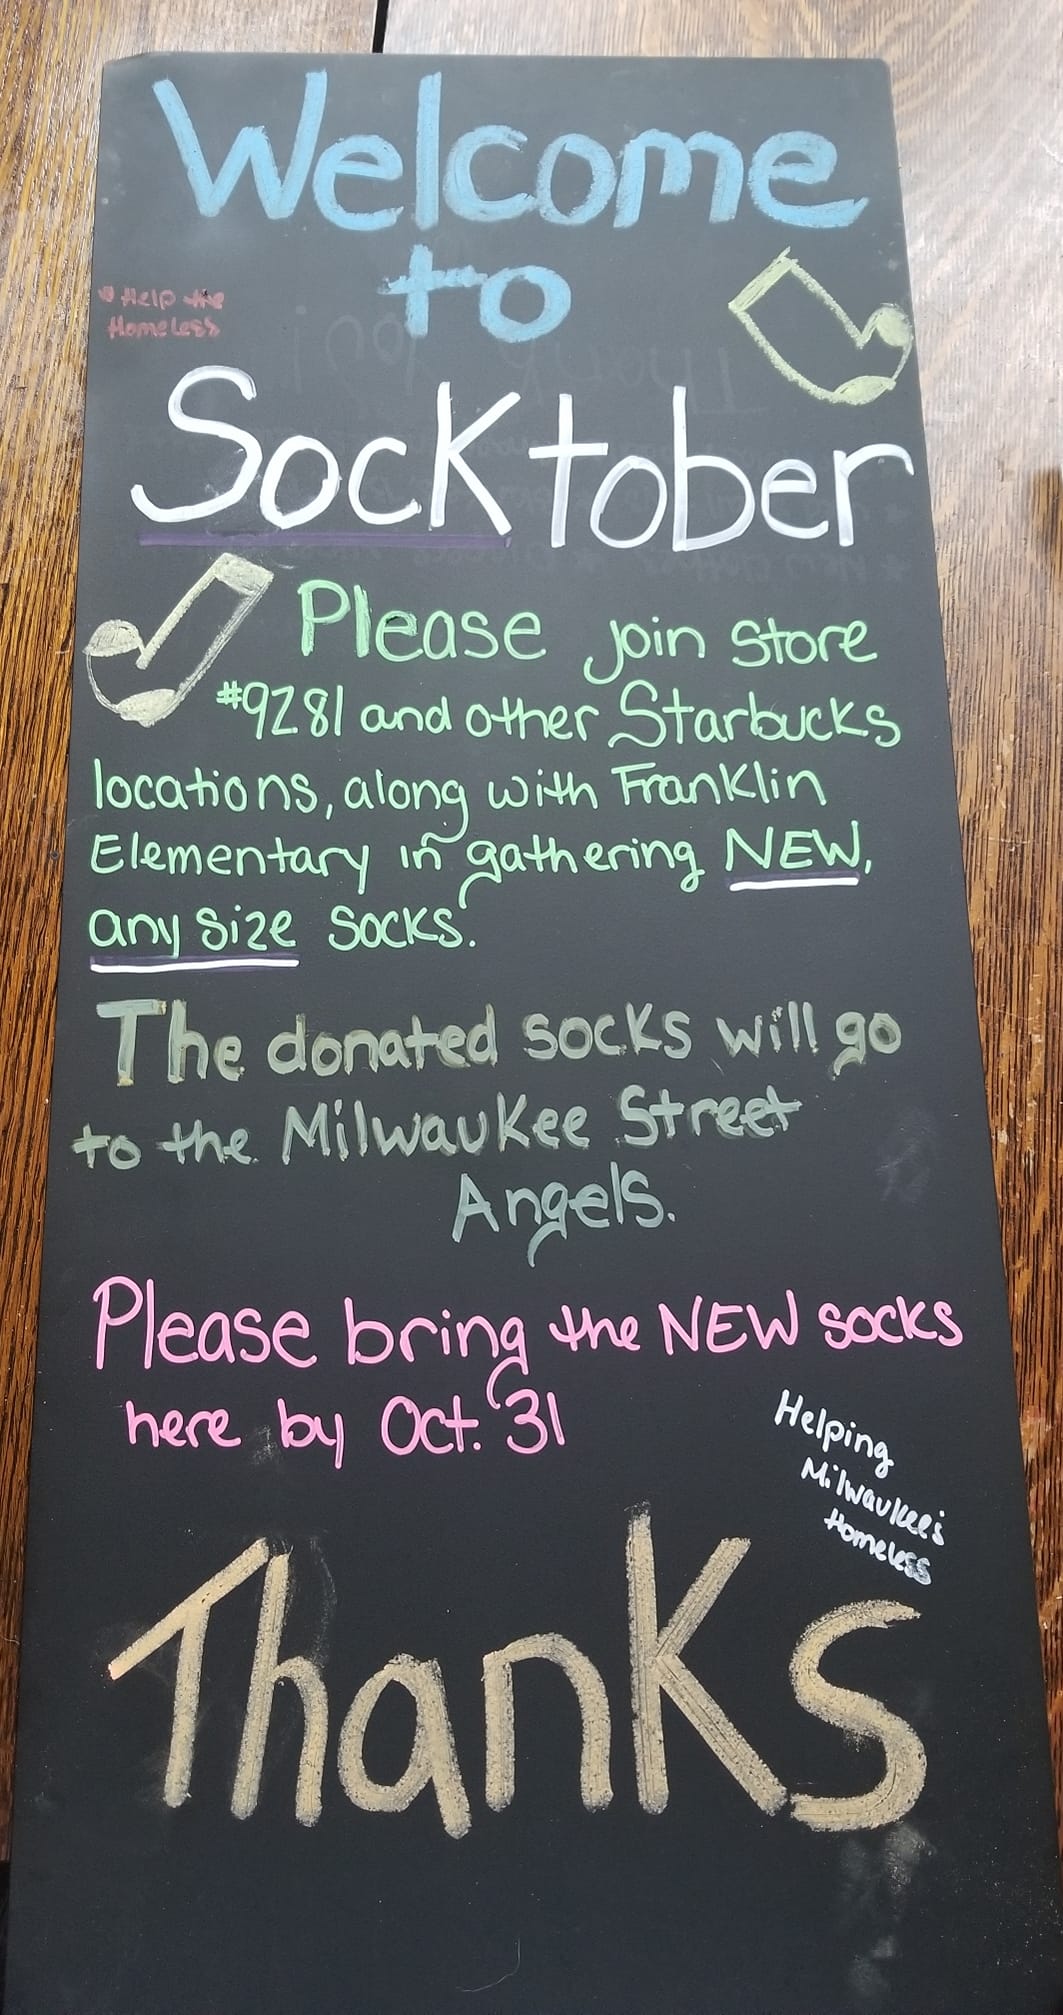 Welcome
to
• Help the
Homeless
Socktober
Please join store
#9281 and other Starbucks
locations, along with Franklin
Elementary in gathering NEW,
any size socks.
The donated socks will go
to the Milwaukee Street
Angels.
Please bring the NEW socks
here by Oct. 31
Helping
Milwaukee's
Homeless
Thanks